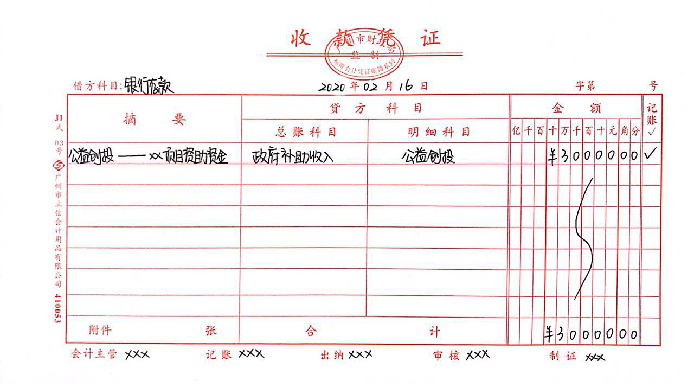 收 款 凭 证
借方科目:银行存款 2020 年 02 月 16 日 字第 号
摘 要 贷 方 科 目 金 额 记账✓
总账科目 明细科目 亿 千 百 十 万 千 百 十 元 角 分
公益创投——xx项目资助资金 政府补助收入 公益创投 ¥3000000 ✓
附件 张 合 计 ¥3000000
会计主管 xxx 记账 xxx 出纳 xxx 审核 xxx 制证 xxx
广州市立信会计用品有限公司 410083